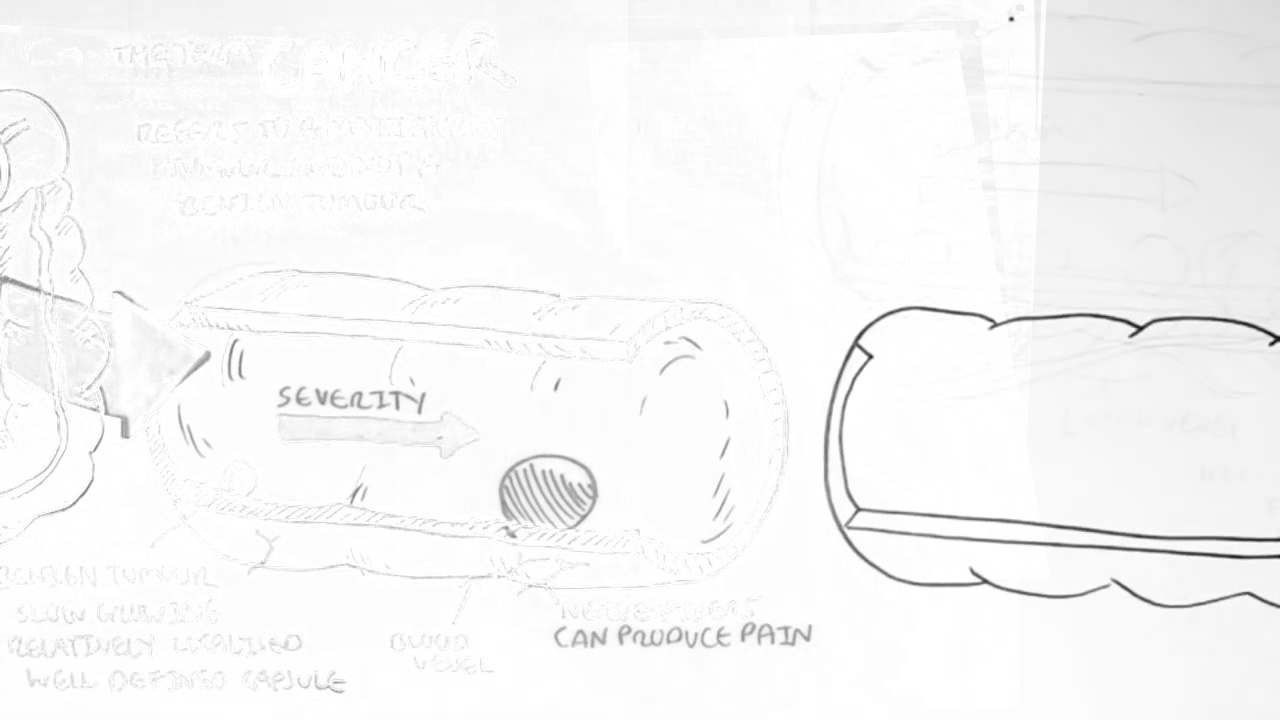 THE TERM CANCER
REFERS TO A MALIGNANT
BENIGN TUMOUR
SEVERITY
BENIGN TUMOUR
SLOW GROWING
RELATIVELY LOCALISED
WELL DEFINED CAPSULE
BLOOD
VESSEL
NERVE FIBERS
CAN PRODUCE PAIN